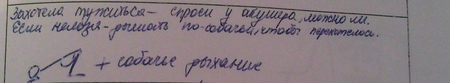 Захотела тужиться – спроси у акушера, можно ли.
Если нельзя – дышать по-собачьи, чтобы перехотелось.
+ собачье дыхание